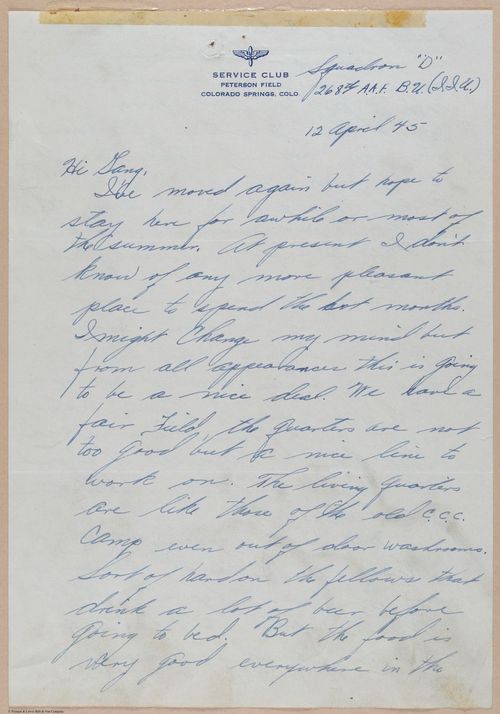 SERVICE CLUB
PETERSON FIELD
COLORADO SPRINGS, COLO.
Squadron "D"
268th A.A.F. B.U. (I.I.U.)
12 April 45
Hi Gang,
I've moved again but hope to
stay here for awhile or most of
the summer. At present I don't
know of any more pleasant
place to spend the hot months.
I might Change my mind but
from all appearances this is going
to be a nice deal. We have a
fair Field, the quarters are not
too good but a nice line to
work on. The living quarters
are like those of the old C.C.C.
Camp even out of door washrooms.
Sort of hard on the fellows that
drink a lot of beer before
going to bed. But the food is
very good everywhere in the